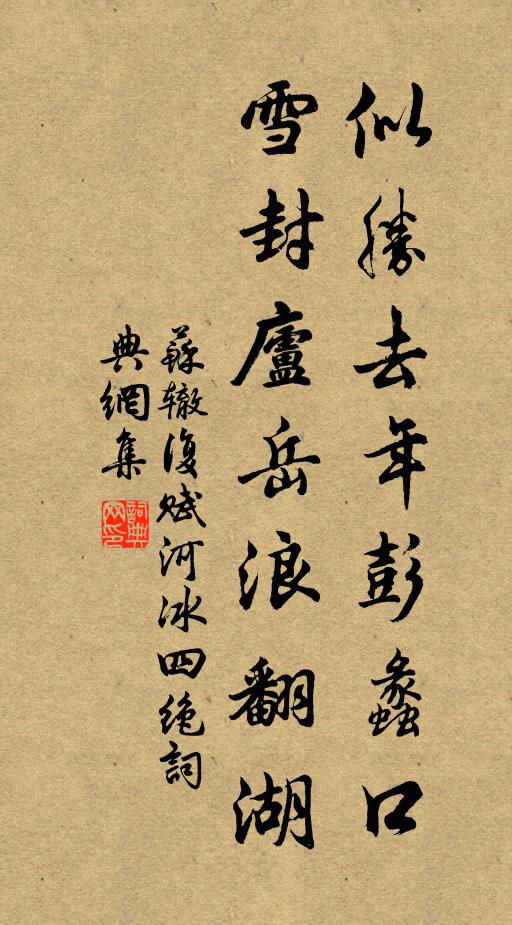 似勝去年彭蠡口
雪封廬岳浪翻湖
蘇辙復赋河冰四绝詞
典網集
詞典網印